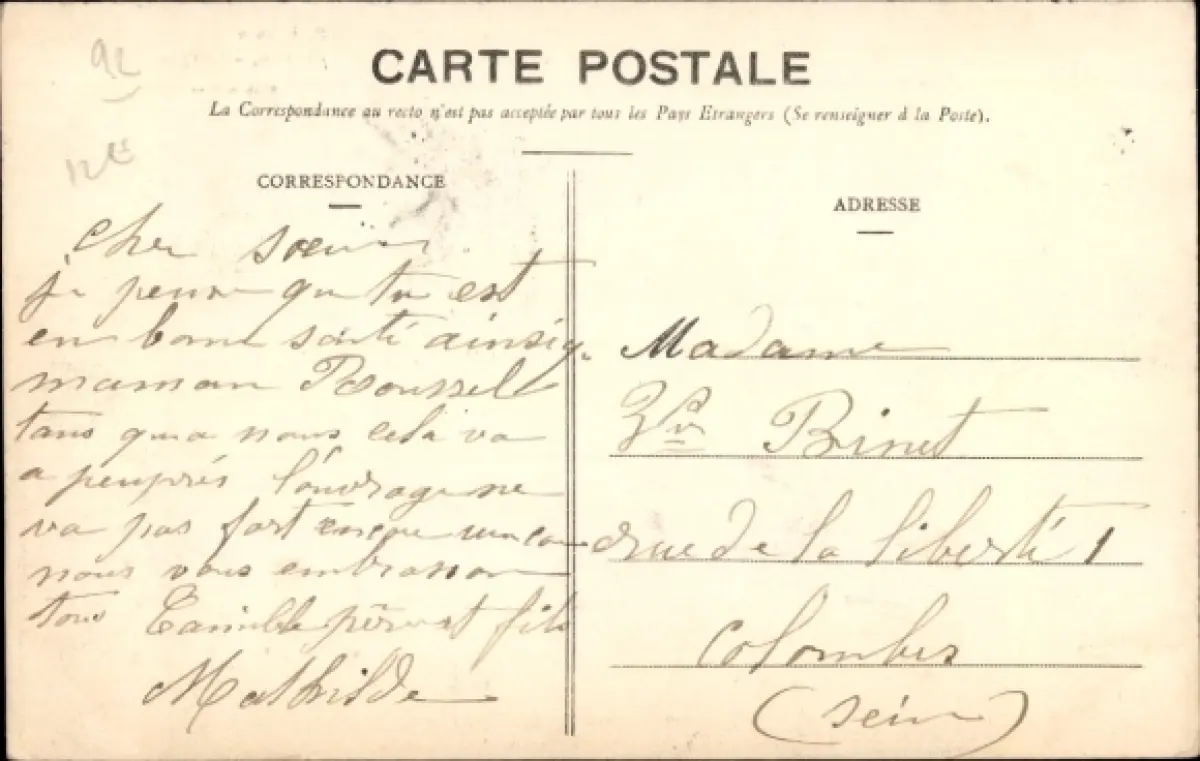 92
CARTE POSTALE
La Correspondance au recto n'est pas acceptée par tous les Pays Etrangers (Se renseigner à la Poste).
12 €
CORRESPONDANCE
ADRESSE
Cher sœur
je pense que tu est
en bonne santé ainsi q.
maman Roussel
tans qua nous cela va
a peuprés l'ouvrage ne
va pas fort
nous vous embrasson
tous Camille père et fils
Mathilde
Madame
Vve Binet
rue de la liberté 1
Colombes
(Seine)